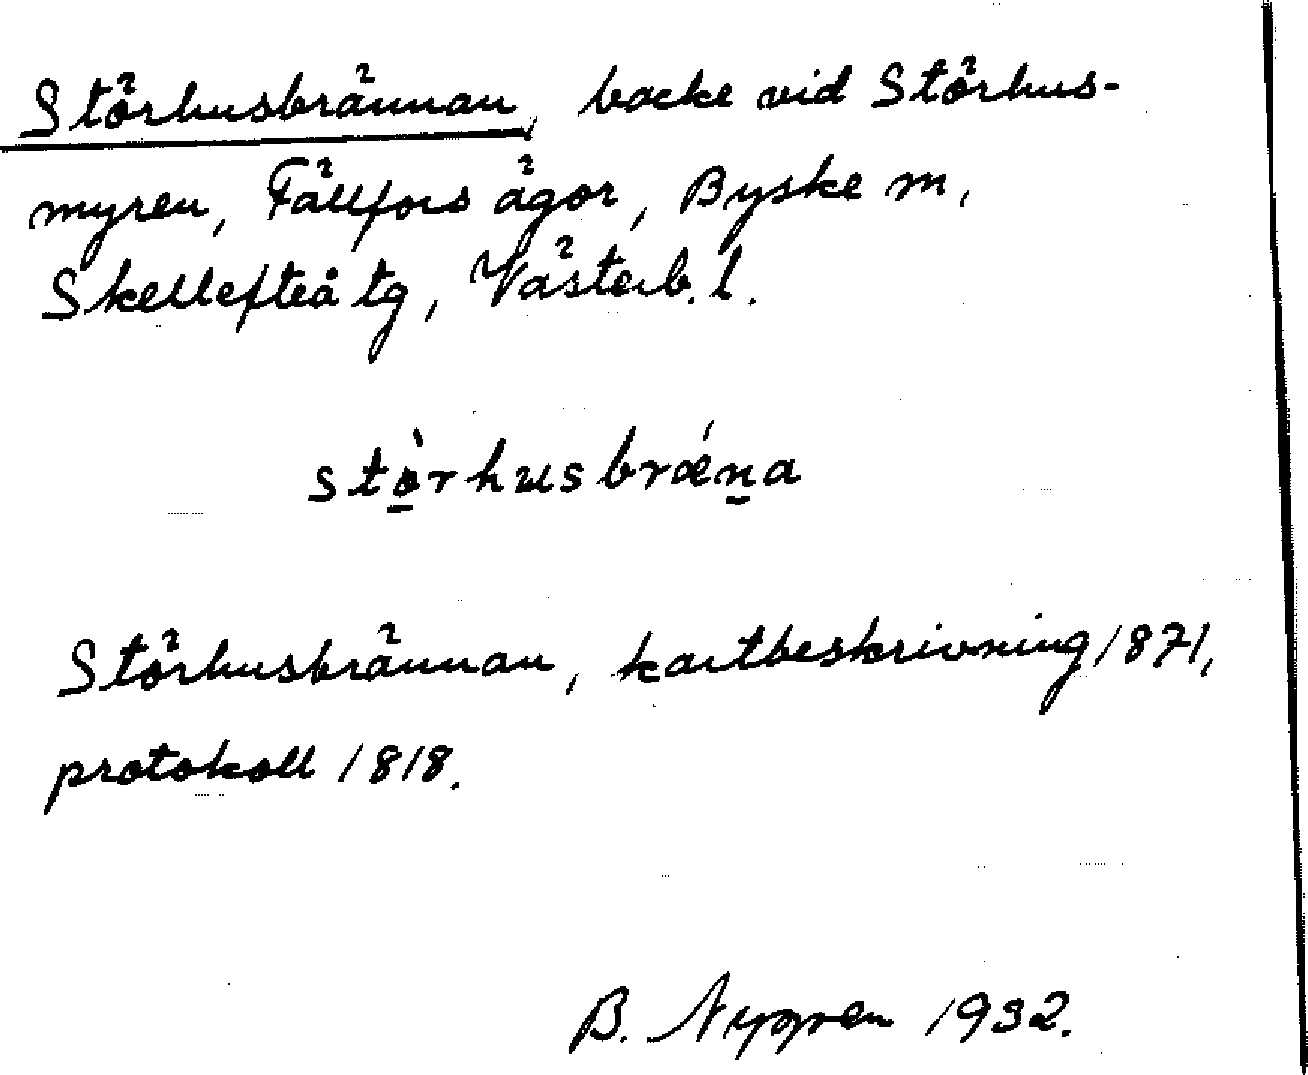 Störhusbrännan, backe vid Störhus-
myren, Fällfors ägor, Byske m,
Skellefteå tg, Västerb. l.
stò̠rhusbrǽn̠a
Störhusbrännan, kartbeskrivning 1871,
protokoll 1818.
B. Nygren 1932.